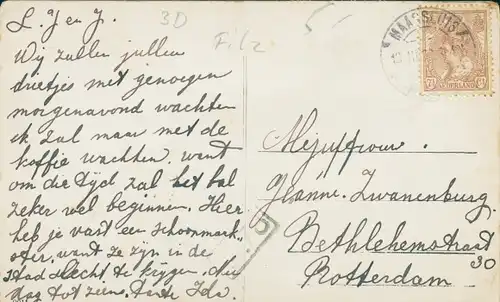 3D
Filz
L. J en J.
Wij zullen jullen
drietjes met genoegen
morgenavond wachten
ik zal maar met de
koffie wachten. want
om die tijd zal het bal
zeker wel beginnen. Hier
heb je vast een schoonmark
ster, want ze zijn in de
stad slecht te krijgen. Nu
dag tot ziens. Tante Ida.
MAASSLUIS
7½ Ct
NEDERLAND
Mejuffrouw.
Jeanne. Zwanenburg.
Bethlehemstraat
30
Rotterdam.